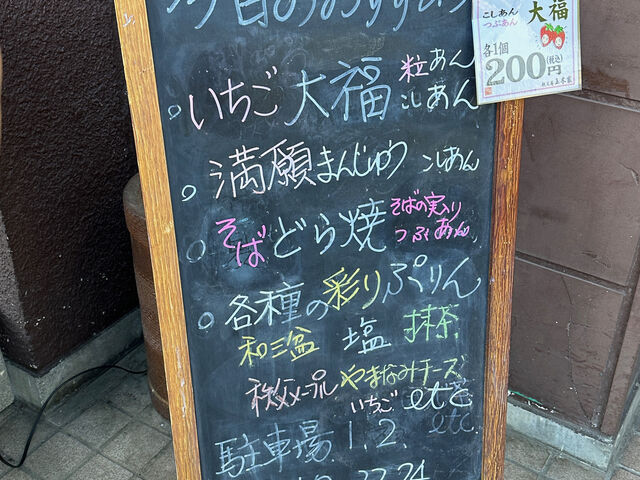 今日のおすすめ
こしあん
つぶあん
大福
各1個
200円
(税込)
いちご大福 粒あん
こしあん
満願まんじゅう こしあん
そばどら焼 そばの実入り
つぶあん
各種の彩りぷりん
和三盆 塩 抹茶
秩父メープル やまなみチーズ
いちご etc
etc
駐車場 1.2.
22.24